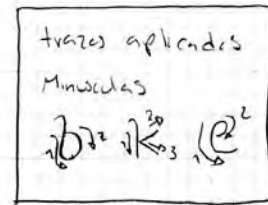 trazos aplicados
Minusculas
1 b 2 1 k 2 3 1 e 2